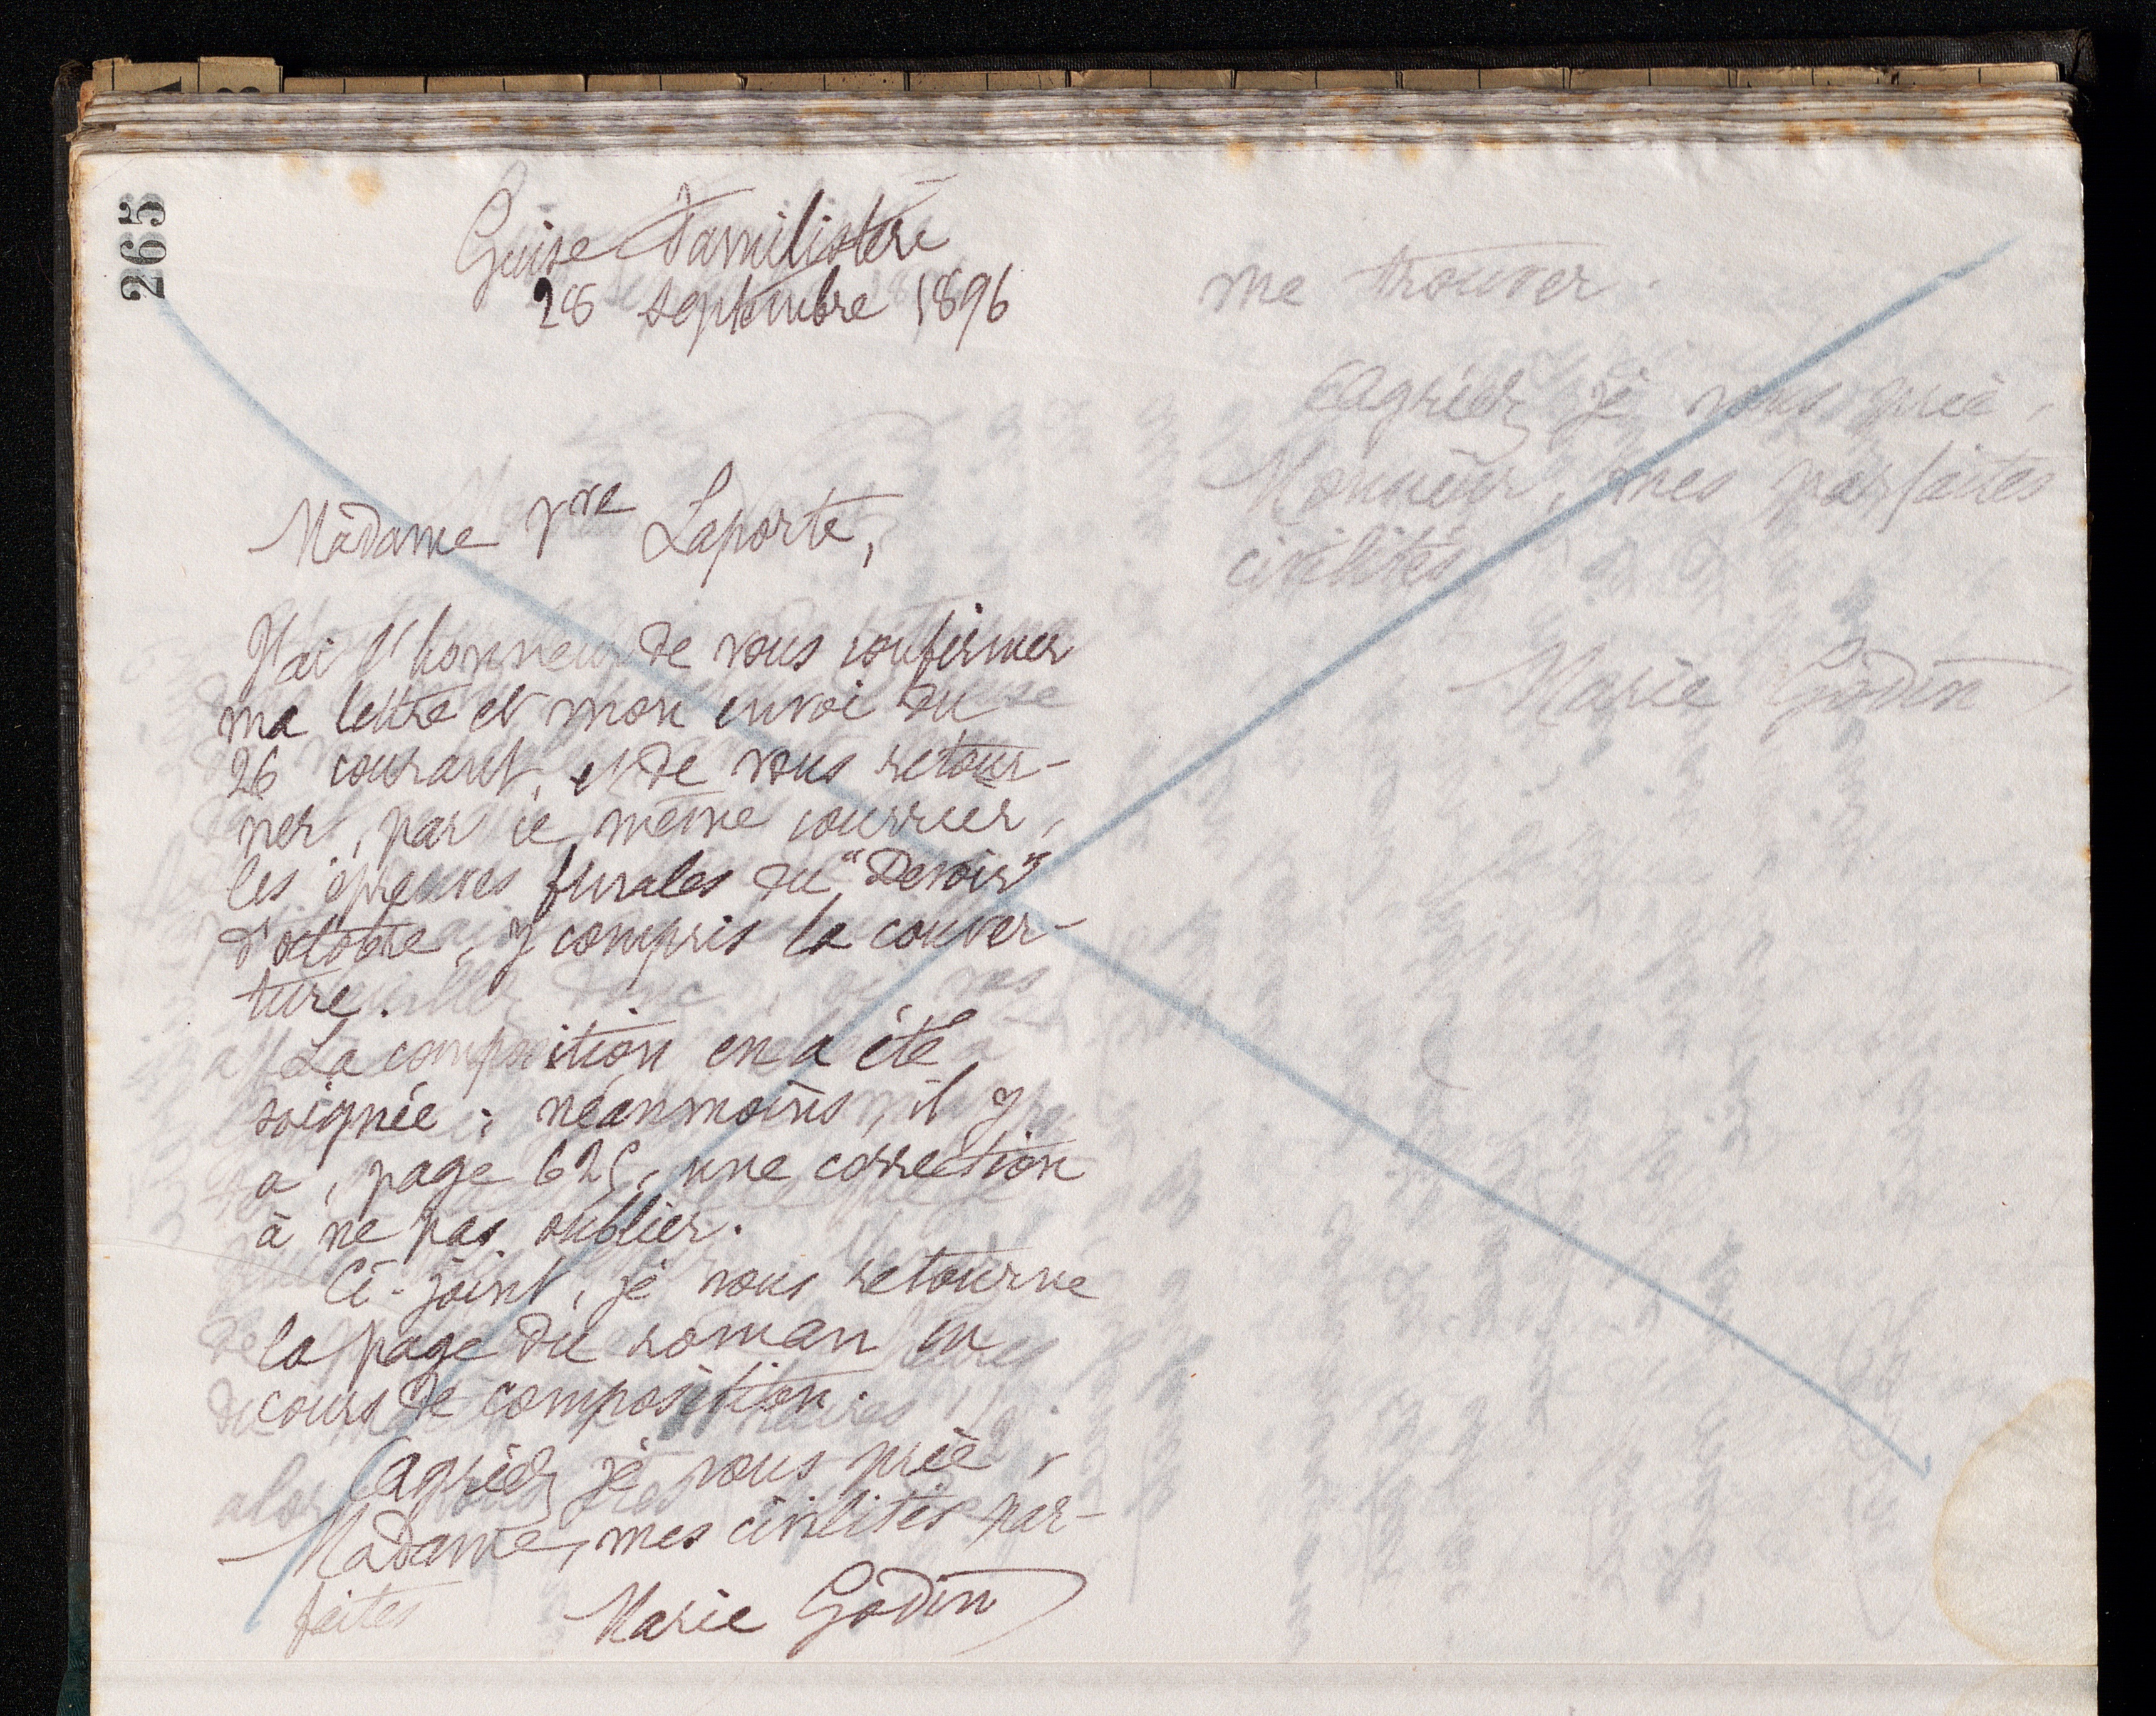 265
Guise Familistère
28 septembre 1896
Madame Vve Laporte,
J'ai l'honneur de vous confirmer
ma lettre et mon envoi du
26 courant, et de vous retour-
ner, par ce même courrier,
les épreuves finales du "Devoir"
d'octobre, y compris la couver-
ture.
La composition en a été
soignée ; néanmoins, il y
a, page 625, une correction
à ne pas oublier.
Ci-joint, je vous retourne
la page du roman en
cours de composition.
Agréez, je vous prie,
Madame, mes civilités par-
faites
Marie Godin
me trouver.
Agréez, je vous prie,
Monsieur, mes parfaites
civilités
Marie Godin